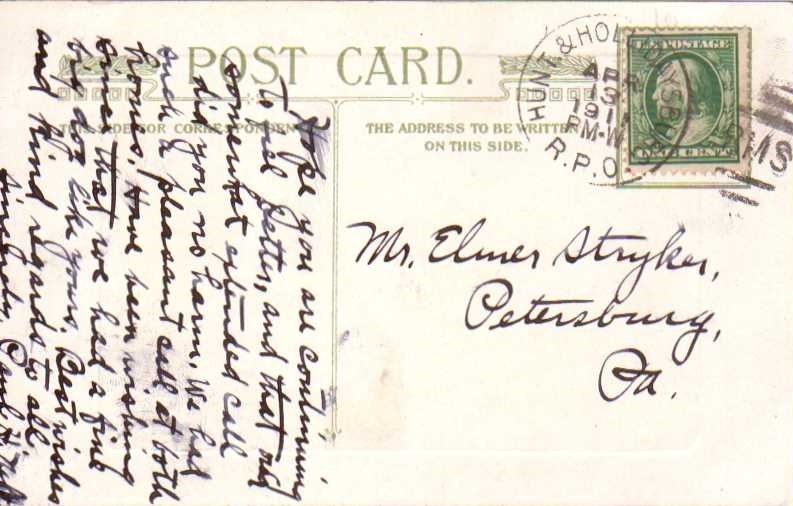 POST CARD.
THIS SIDE FOR CORRESPONDEN
THE ADDRESS TO BE WRITTEN
ON THIS SIDE.
HUNT. & HOLLIDAYSBURG
APR
13
1911
PM-W
R.P.O.
RMS
U.S. POSTAGE
Mr. Elmer Stryker,
Petersburg,
Pa.
Hope you are continuing
to feel better, and that our
somewhat extended call
did you no harm. We had
such a pleasant call at both
homes. Have been wishing
since that we had a fine
big dog like yours. Best wishes
and kind regards to all
Sincerely, Paul H.